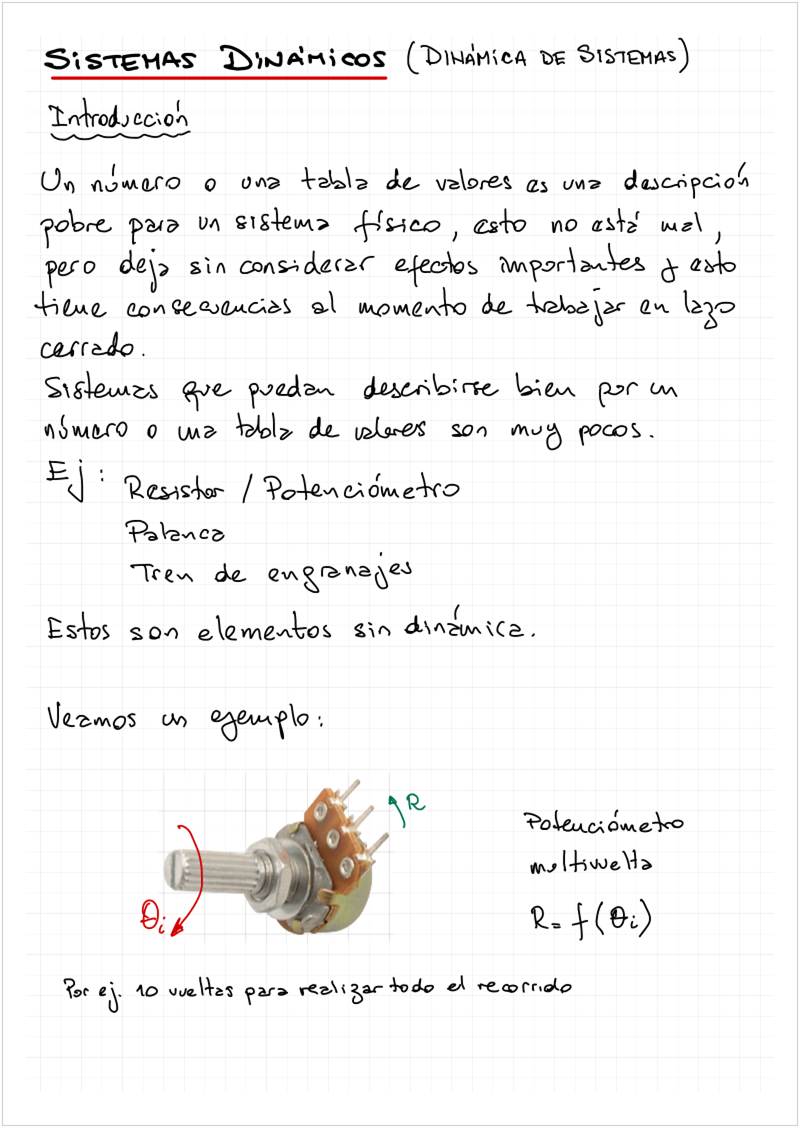 SISTEMAS DINÁMICOS (DINÁMICA DE SISTEMAS)
Introducción
Un número o una tabla de valores es una descripción
pobre para un sistema físico, esto no está mal,
pero deja sin considerar efectos importantes y esto
tiene consecuencias al momento de trabajar en lazo
cerrado.
Sistemas que puedan describirse bien por un
número o una tabla de valores son muy pocos.
Ej: Resistor / Potenciómetro
Palanca
Tren de engranajes
Estos son elementos sin dinámica.
Veamos un ejemplo:
R
θi
Potenciómetro
multivuelta
R = f(θi)
Por ej. 10 vueltas para realizar todo el recorrido